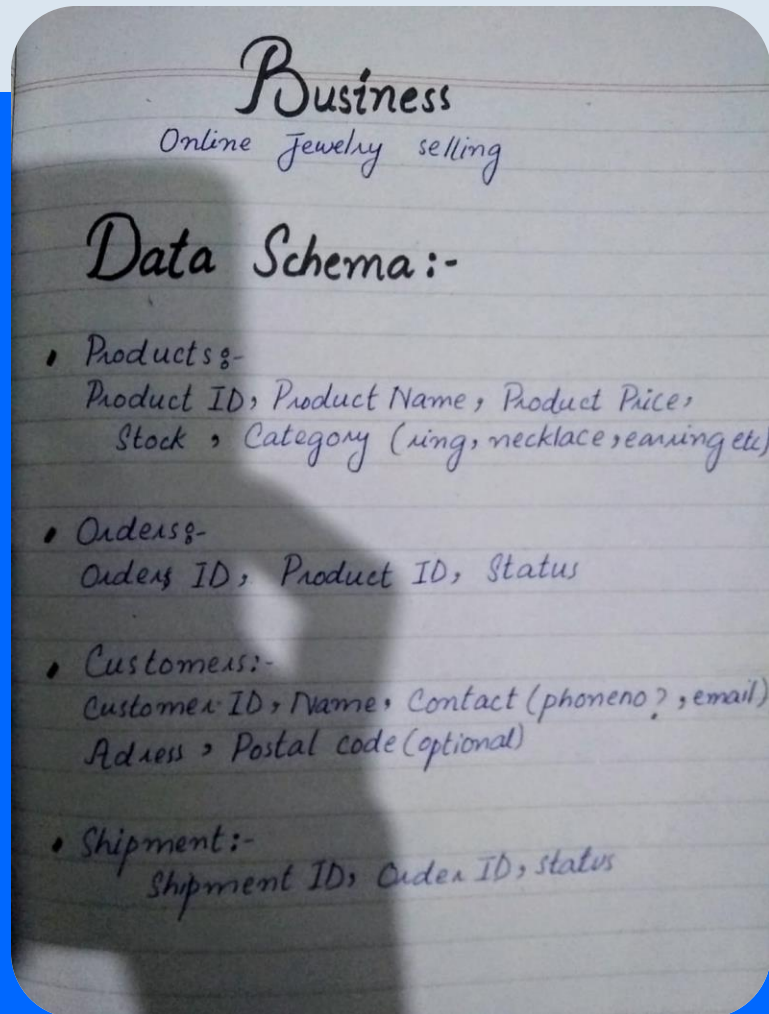 Business
Online Jewelry selling
Data Schema:-
• Products:-
Product ID, Product Name, Product Price,
Stock, Category (ring, necklace, earring etc)
• Orders:-
Orders ID, Product ID, Status
• Customers:-
Customer ID, Name, Contact (phoneno?, email)
Adress, Postal code (optional)
• Shipment:-
Shipment ID, Order ID, status